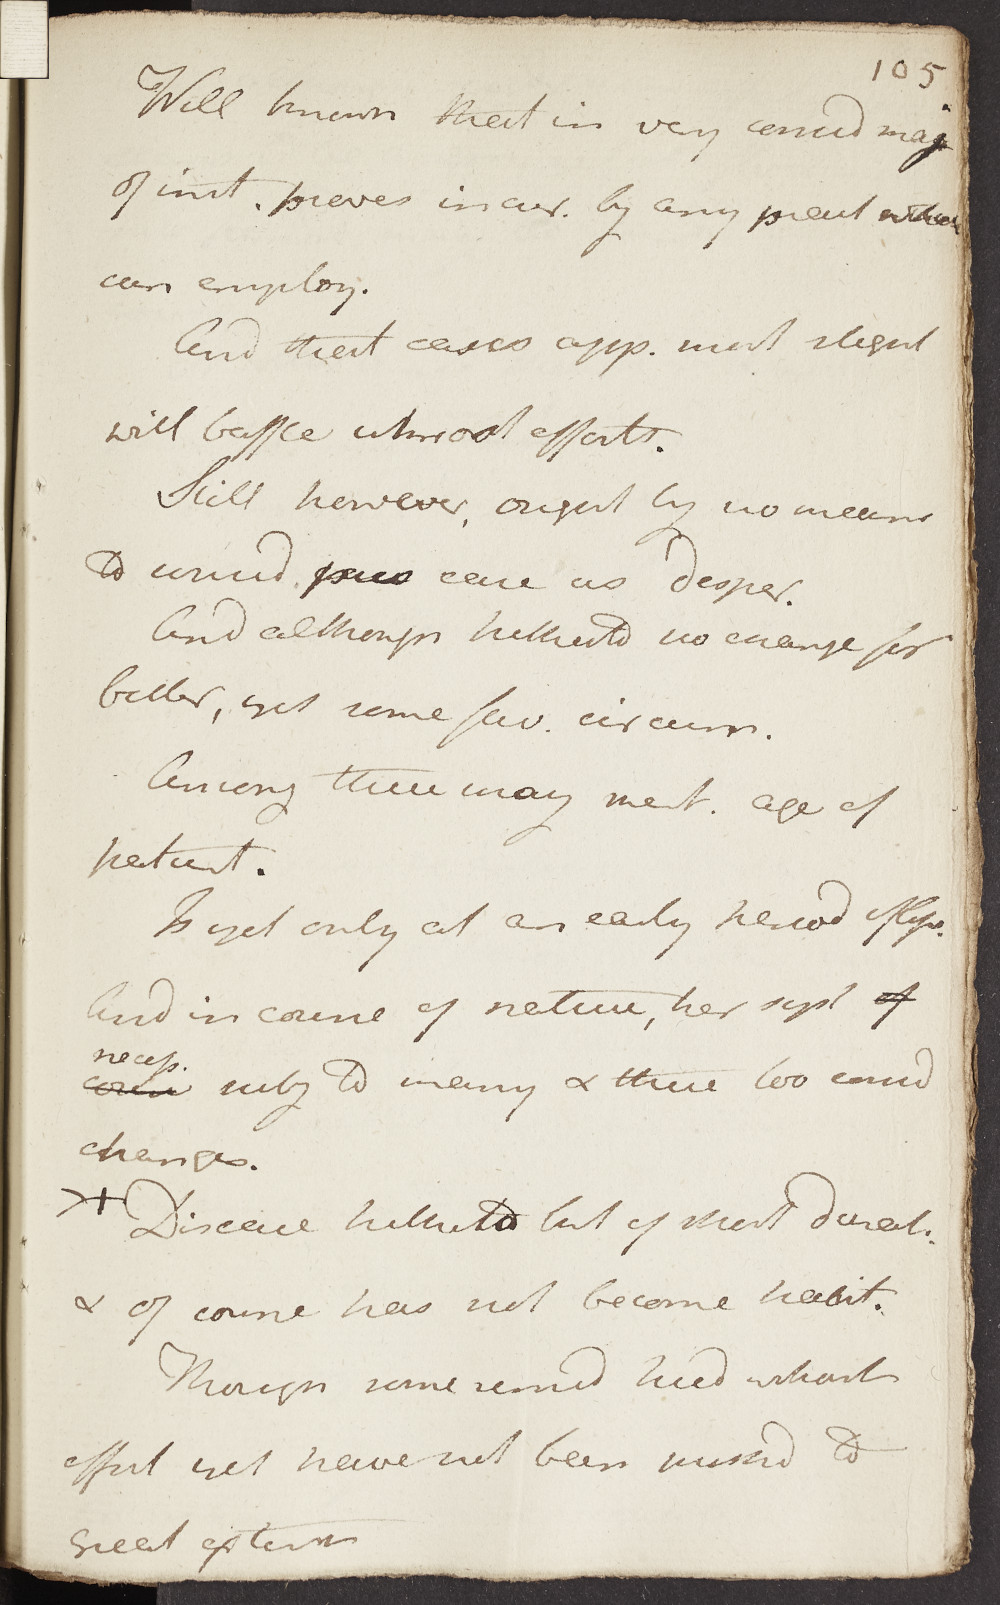 105.
Well known that in very consid maj
of inst. proves incur. by any pract
can employ.
And that cases app. most slight
will baffle utmost efforts.
Still however, ought by no means
to consid. case as desper.
And although hitherto no change for
better, yet some fav. circum.
Among these may ment. age of
patient.
Is yet only at an early period of life.
And in course of nature, her syst of
necess.
subj to many & these too consid
changes.
Disease hitherto but of short durat.
& of course has not become habit.
Though some remed tried without
effect yet have not been pushd to
great extent